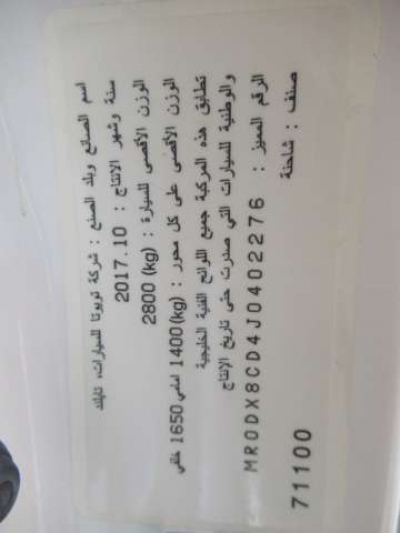 اسم الصانع وبلد الصنع : شركة تويوتا للسيارات، تايلاند
سنة وشهر الانتاج : 2017.10
الوزن الأقصى للسيارة : 2800 (kg)
الوزن الأقصى على كل محور : 1400(kg) امامي 1650 خلفي
تطابق هذه المركبة جميع اللوائح الفنية الخليجية
والوطنية للسيارات التي صدرت حتى تاريخ الإنتاج
الرقم المميز : MR0DX8CD4J0402276
صنف : شاحنة
71100